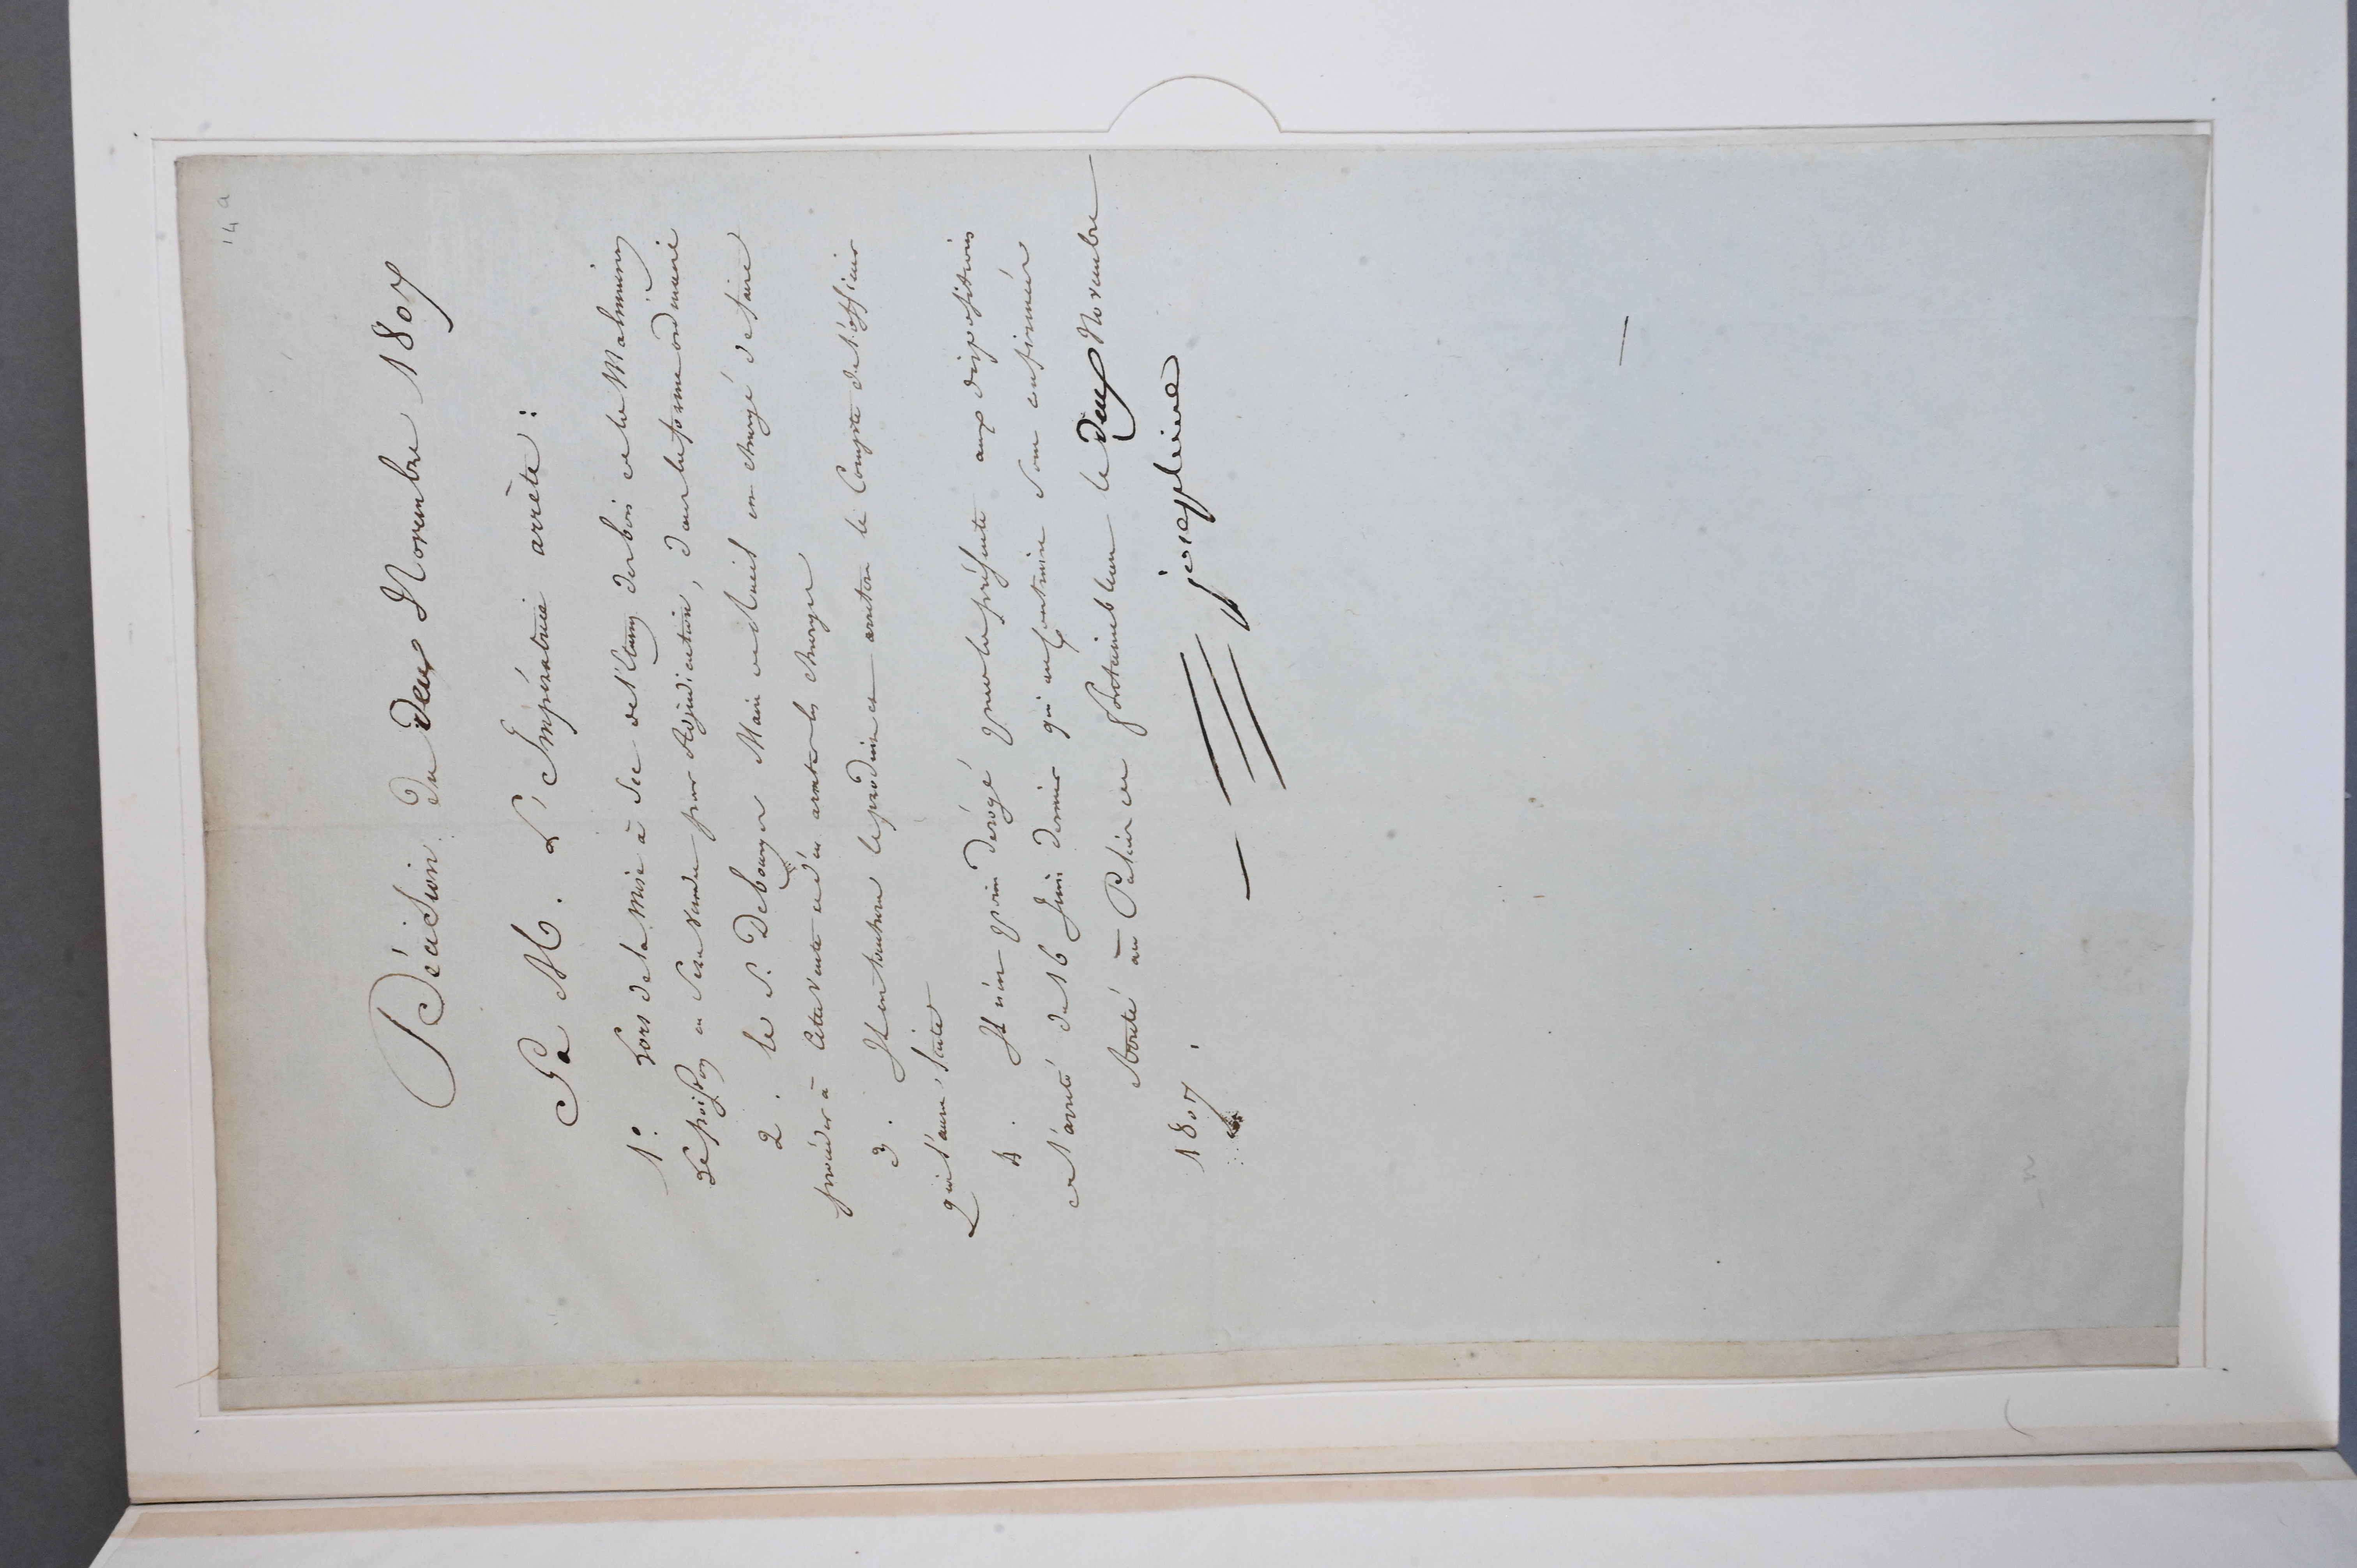 14 a
Décision du deux Novembre 1807
Sa M. L'Impératrice arrête :
1º. Lors de la mise à sec de l'Etang des bois de la Malmaison
Le poisson en sera vendu par Adjudication, dans la forme ordinaire
2. le S. Debourges Maire de Rueil est chargé de faire
procéder à cette vente et d'en arrêter les charges
3. Il en touchera le produit et arrêtera le Compte de l'officier
qui l'aura faite
4. Il n'est point dérogé par la présente aux dispositions
de l'arrêté du 16 Juin dernier qui au contraire sont confirmées
Arrêté au Palais de fontainebleau le deux Novembre
1807.
josephine